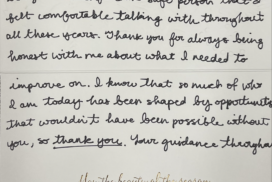 felt comfortable talking with throughout
all these years. Thank you for always being
honest with me about what I needed to
improve on. I know that so much of who
I am today has been shaped by opportunities
that wouldn't have been possible without
you, so thank you. Your guidance throughou